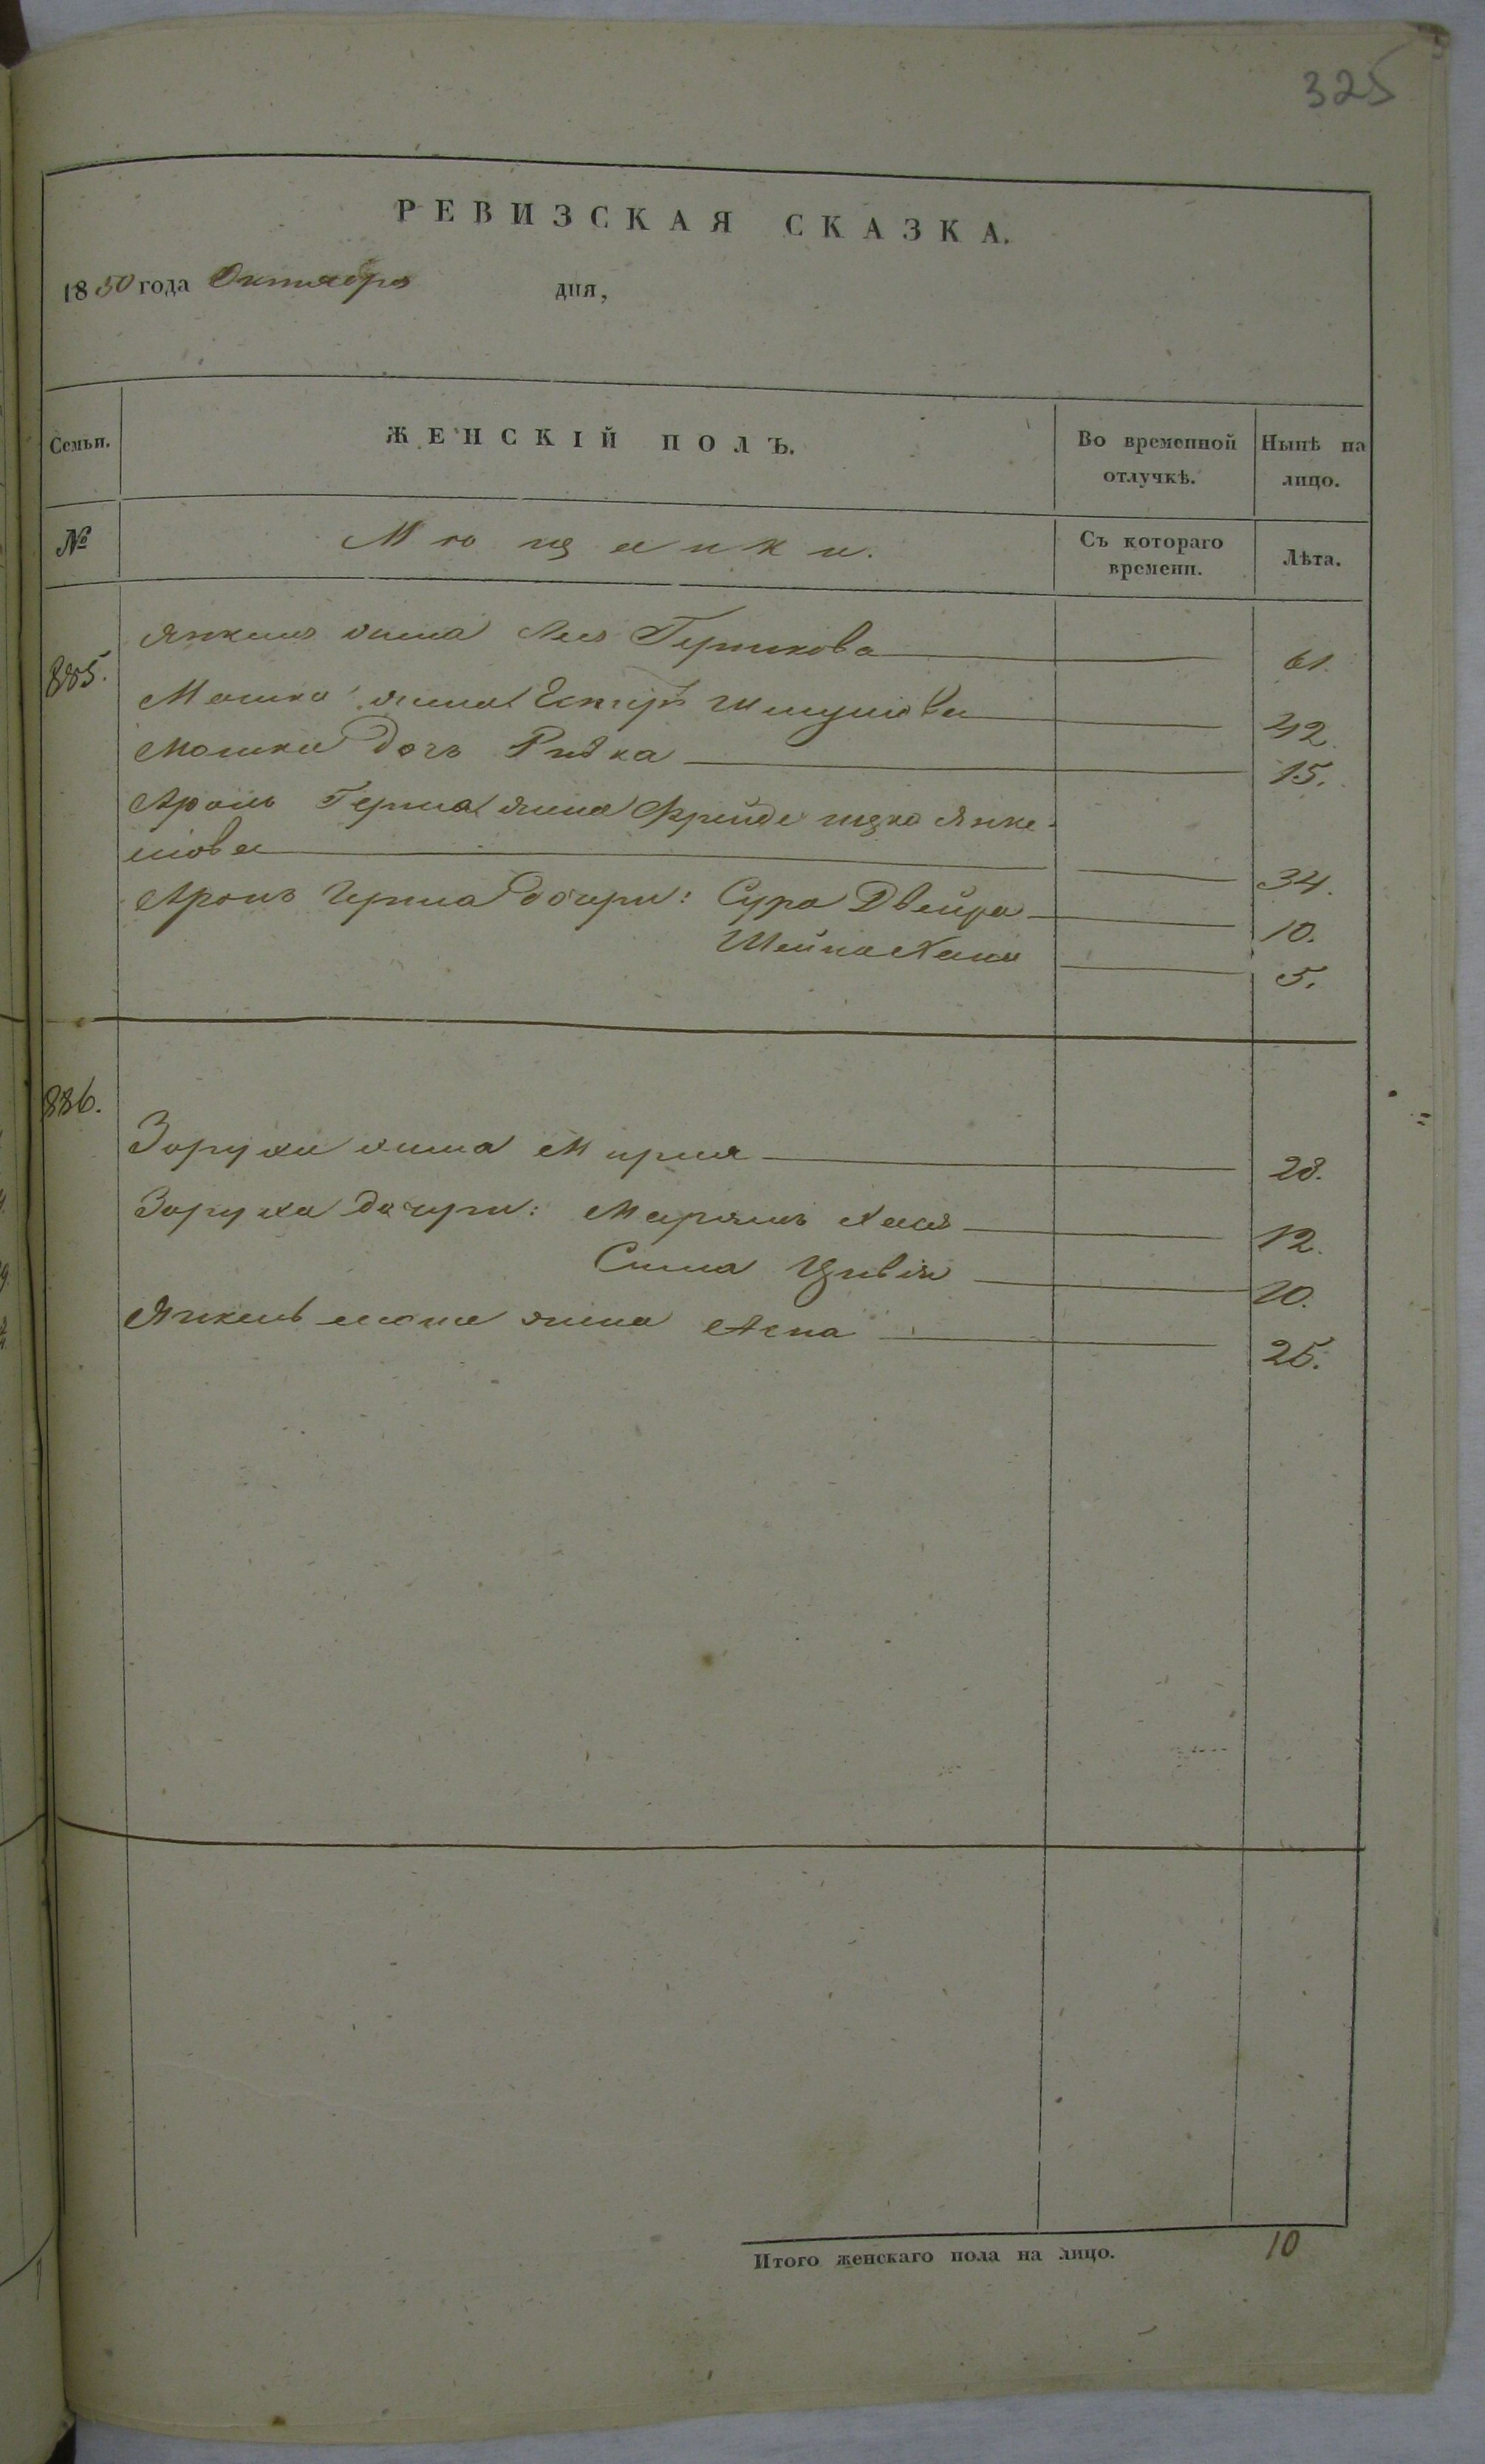 325
РЕВИЗСКАЯ СКАЗКА.
1850 года Октября дня,
Семьи. ЖЕНСКІЙ ПОЛЪ. Во временной отлучкѣ. Нынѣ на лицо.
№ Мѣщанки. Съ котораго времени. Лѣта.
885. Янкеля жена Лея Гершкова 61.
Мошка жена Естеръ 42.
Мошка дочь Ривка 15.
Аронъ Герша жена Фрейде Янке-
лова 34.
Аронъ Герша дочери: Сура Двейра 10.
Шейна Хана 5.
886.
Заруха жена Мирля 28.
Заруха дочери: Марьямъ Хася 12.
Сима Цивія 10.
Янкель жена 25.
Итого женскаго пола на лицо. 10